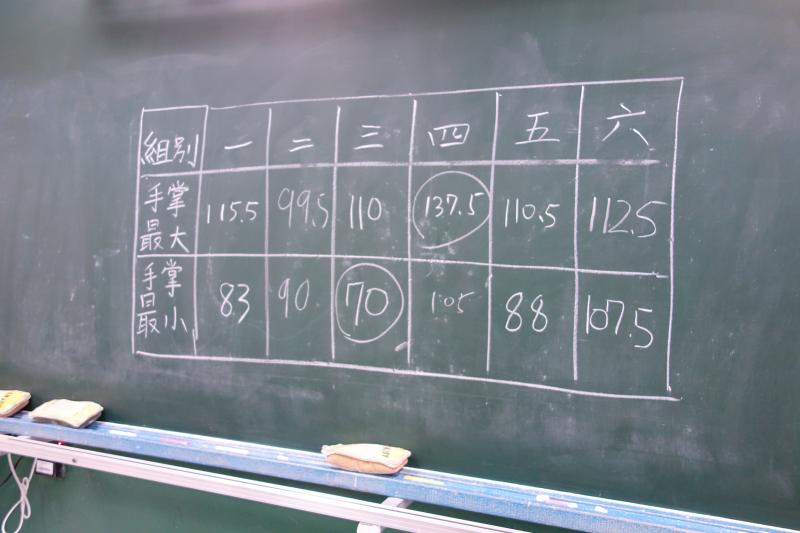 組別 一 二 三 四 五 六
手掌最大 115.5 99.5 110 137.5 110.5 112.5
手掌最小 83 90 70 105 88 107.5